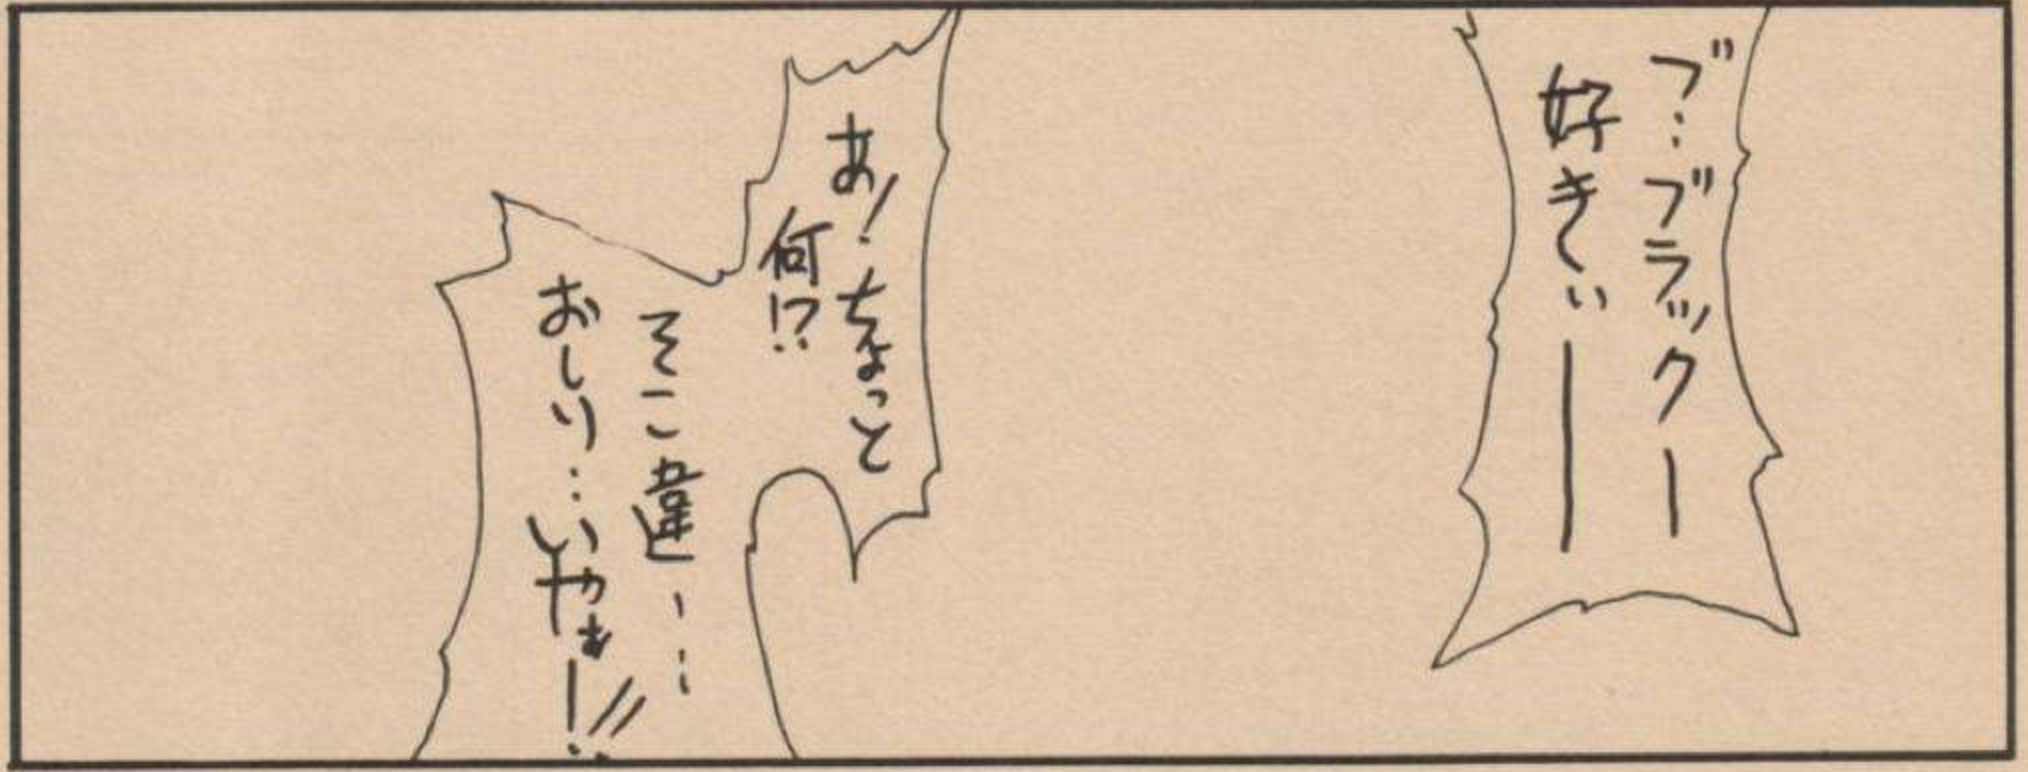 ブ…ブラックー
好きぃ──
あ!ちょっと
何!?
そこ違ー…
おしり…いやぁー!!